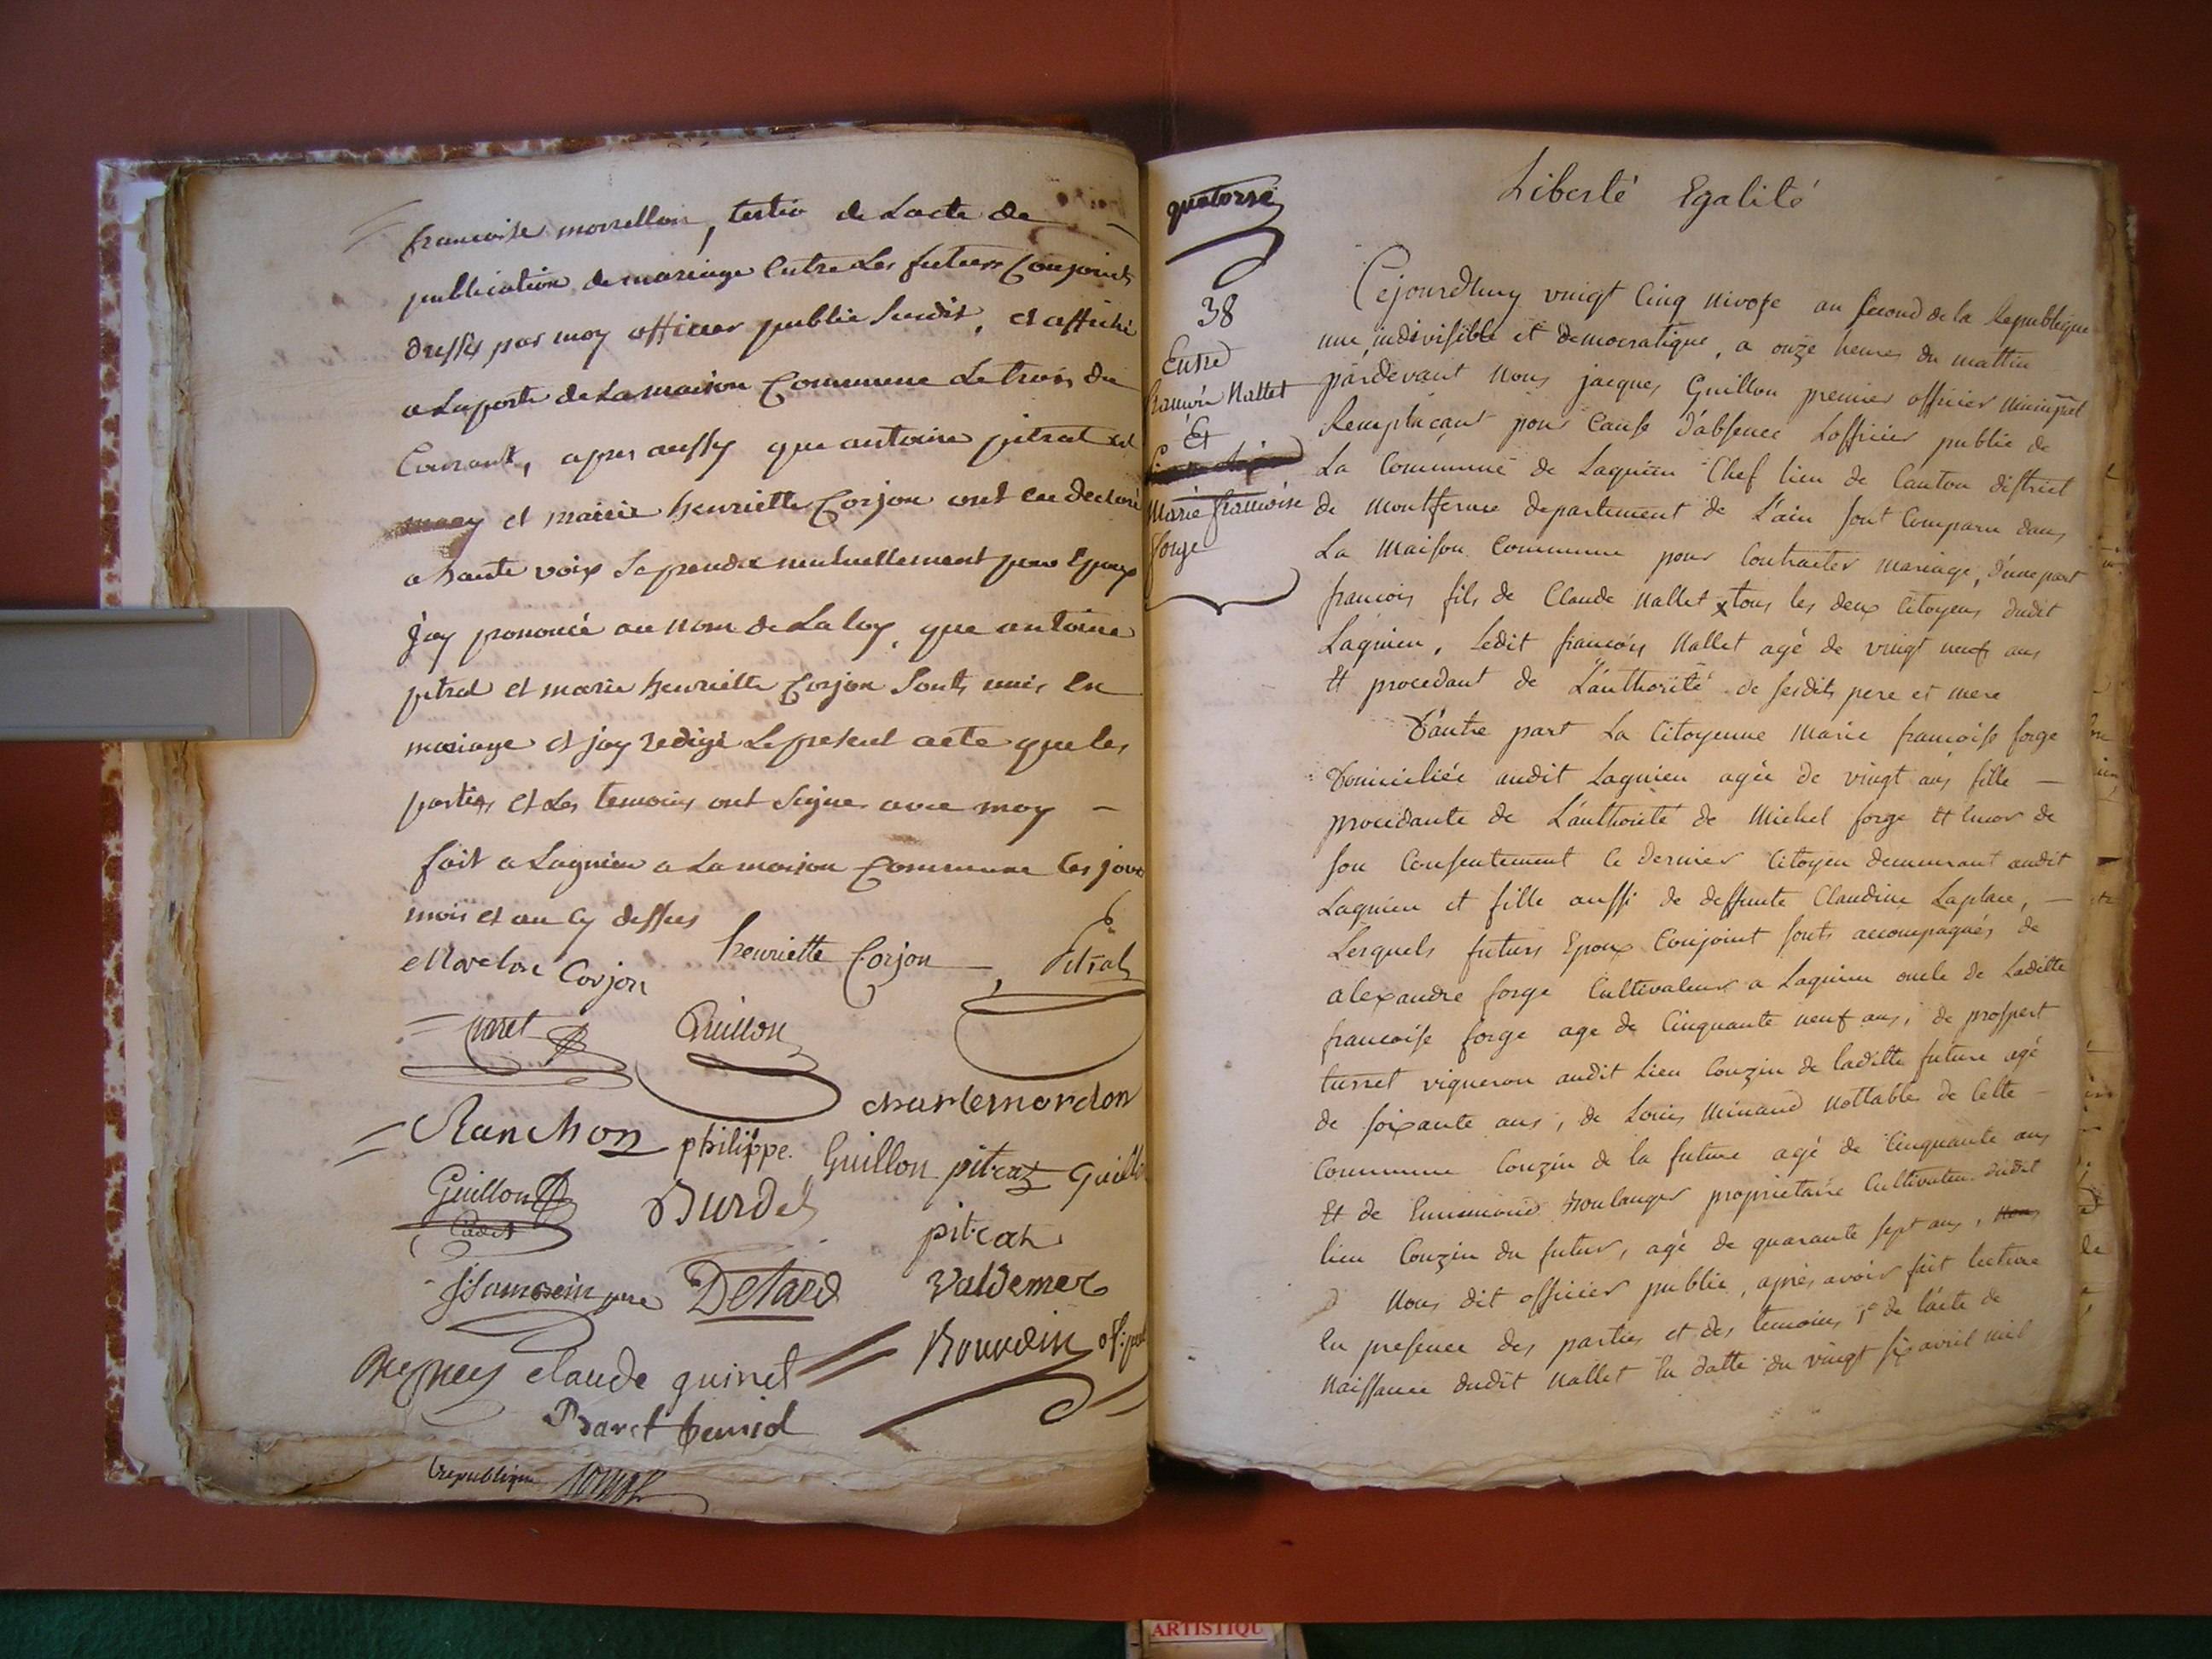 francoise morrellon, tertio de Lacte de
publication de mariage Entre Les futurs Conjoints
dressés par moy officier public Susdit, et affiché
a Laporte de Lamaison Commune Le trois du
Courant, apres aussy que antoine pitrat
et marie henriette Corjon ont eu declaré
a haute voix Se prendre mutuellement pour Epoux
j'ay prononcé au nom de La loy, que antoine
pitrat et marie henriette Corjon Sonts unis En
mariage et jay redigé Le present acte que les
parties et Les temoins ont Signer avec moy –
fait a Lagnieu a La maison Commune les jour
mois et an cy dessus
Corjon henriette Corjon Pitrat
Guillon
charlemordon
Ranchon philippe. Guillon pitrat
Guillon Cadet Burdet
pitrat
Detard Valdemer
claude quinet
Bourdin
republique
quatorze
38
Entre
francois Nallet
Et
Marie francoise
forge
Liberté Egalité
Cejourdhuy vingt Cinq nivose an second de la Republique
une, indivisible et democratique, a onze heures du mattin
pardevant Nous jacques Guillon premier officier municipal
Remplacant pour Cause d'absence Lofficier public de
La Commune de Lagnieu Chef lieu de Canton district
de Montferme departement de L'ain sont Comparu dans
La Maison Commune pour Contracter mariage, d'une part
francois fils de Claude Nallet x tous les deux Citoyens dudit
Lagnieu, Ledit francois Nallet agé de vingt neuf ans
Et procedant de L'authorité de sesdits pere et mere
D'autre part La Citoyenne Marie francoise forge
Domiciliée audit Lagnieu agée de vingt ans fille –
procedante de L'authorité de Michel forge Et encor de
son Consentement Ce dernier Citoyen demeurant audit
Lagnieu et fille aussi de deffunte Claudine Laplace, –
Lesquels futurs Epoux Conjoint sonts accompagnés de
alexandre forge Cultivateur a Lagnieu oncle de Laditte
francoise forge age de Cinquante neuf ans, de prospert
turret vigneron audit Lieu Couzin de laditte future agé
de soixante ans, de Louis Minaud Nottables de Cette –
Commune Couzin de la future agé de Cinquante ans
Et de Ennemond Boulanger proprietaire Cultivateur dudit
lieu Couzin du futur, agé de quarante sept ans,
Nous dit officier public, après avoir fait lecture
En presence des parties et des temoins 1° de l'acte de
Naissance dudit Nallet En datte du vingt six avril mil
ARTISTIQU